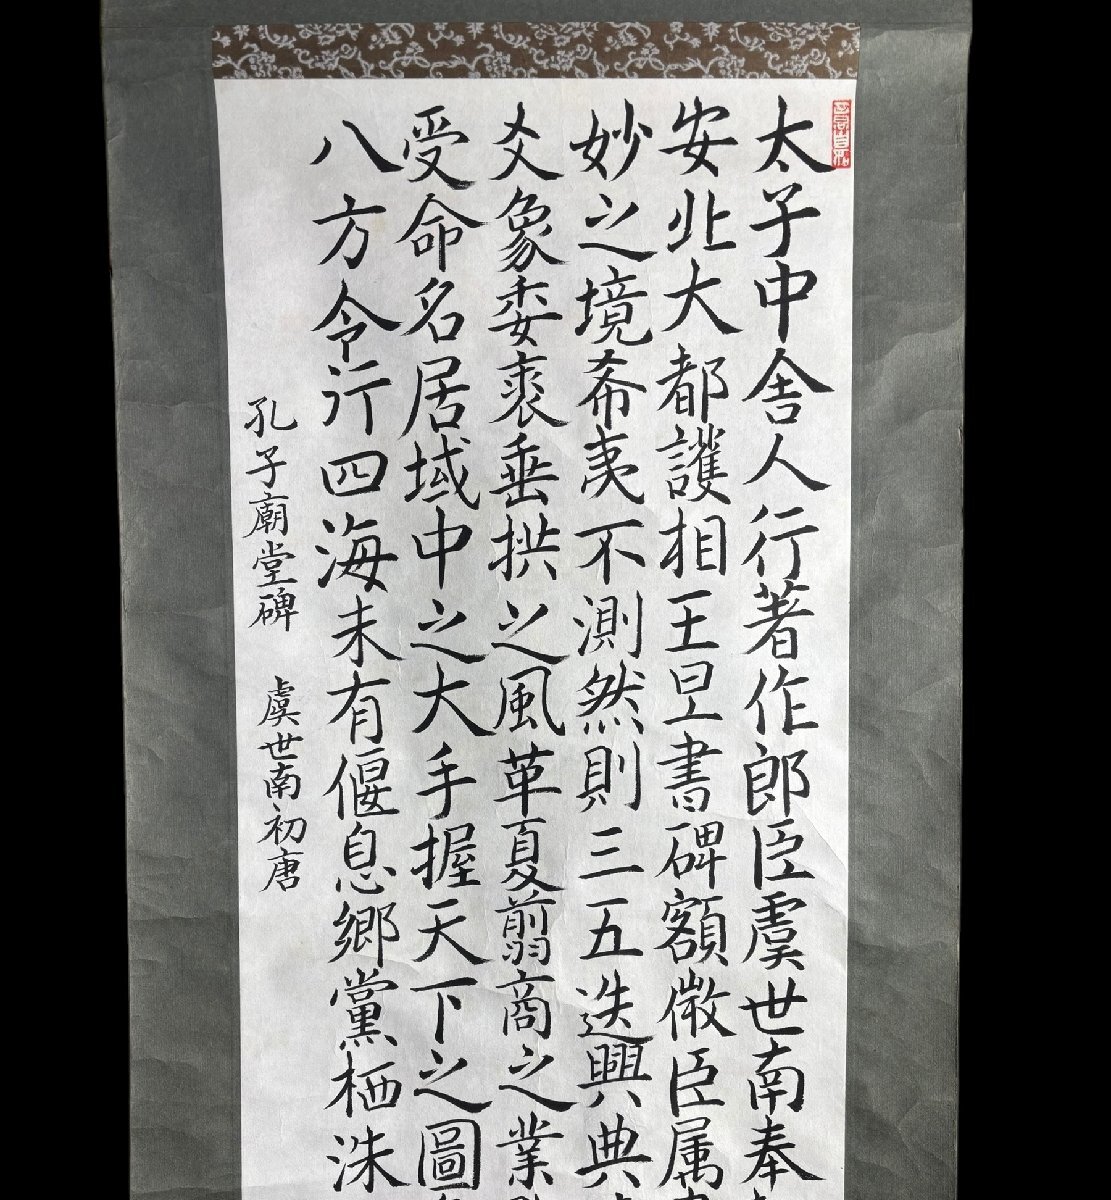 太子中舎人行著作郎臣虞世南奉
安北大都護相王旦書碑額微臣属
妙之境希夷不測然則三五迭興典
爻象委裘垂拱之風革夏翦商之業
受命名居域中之大手握天下之圖
八方令行四海未有偃息郷黨栖洙
孔子廟堂碑 虞世南初唐